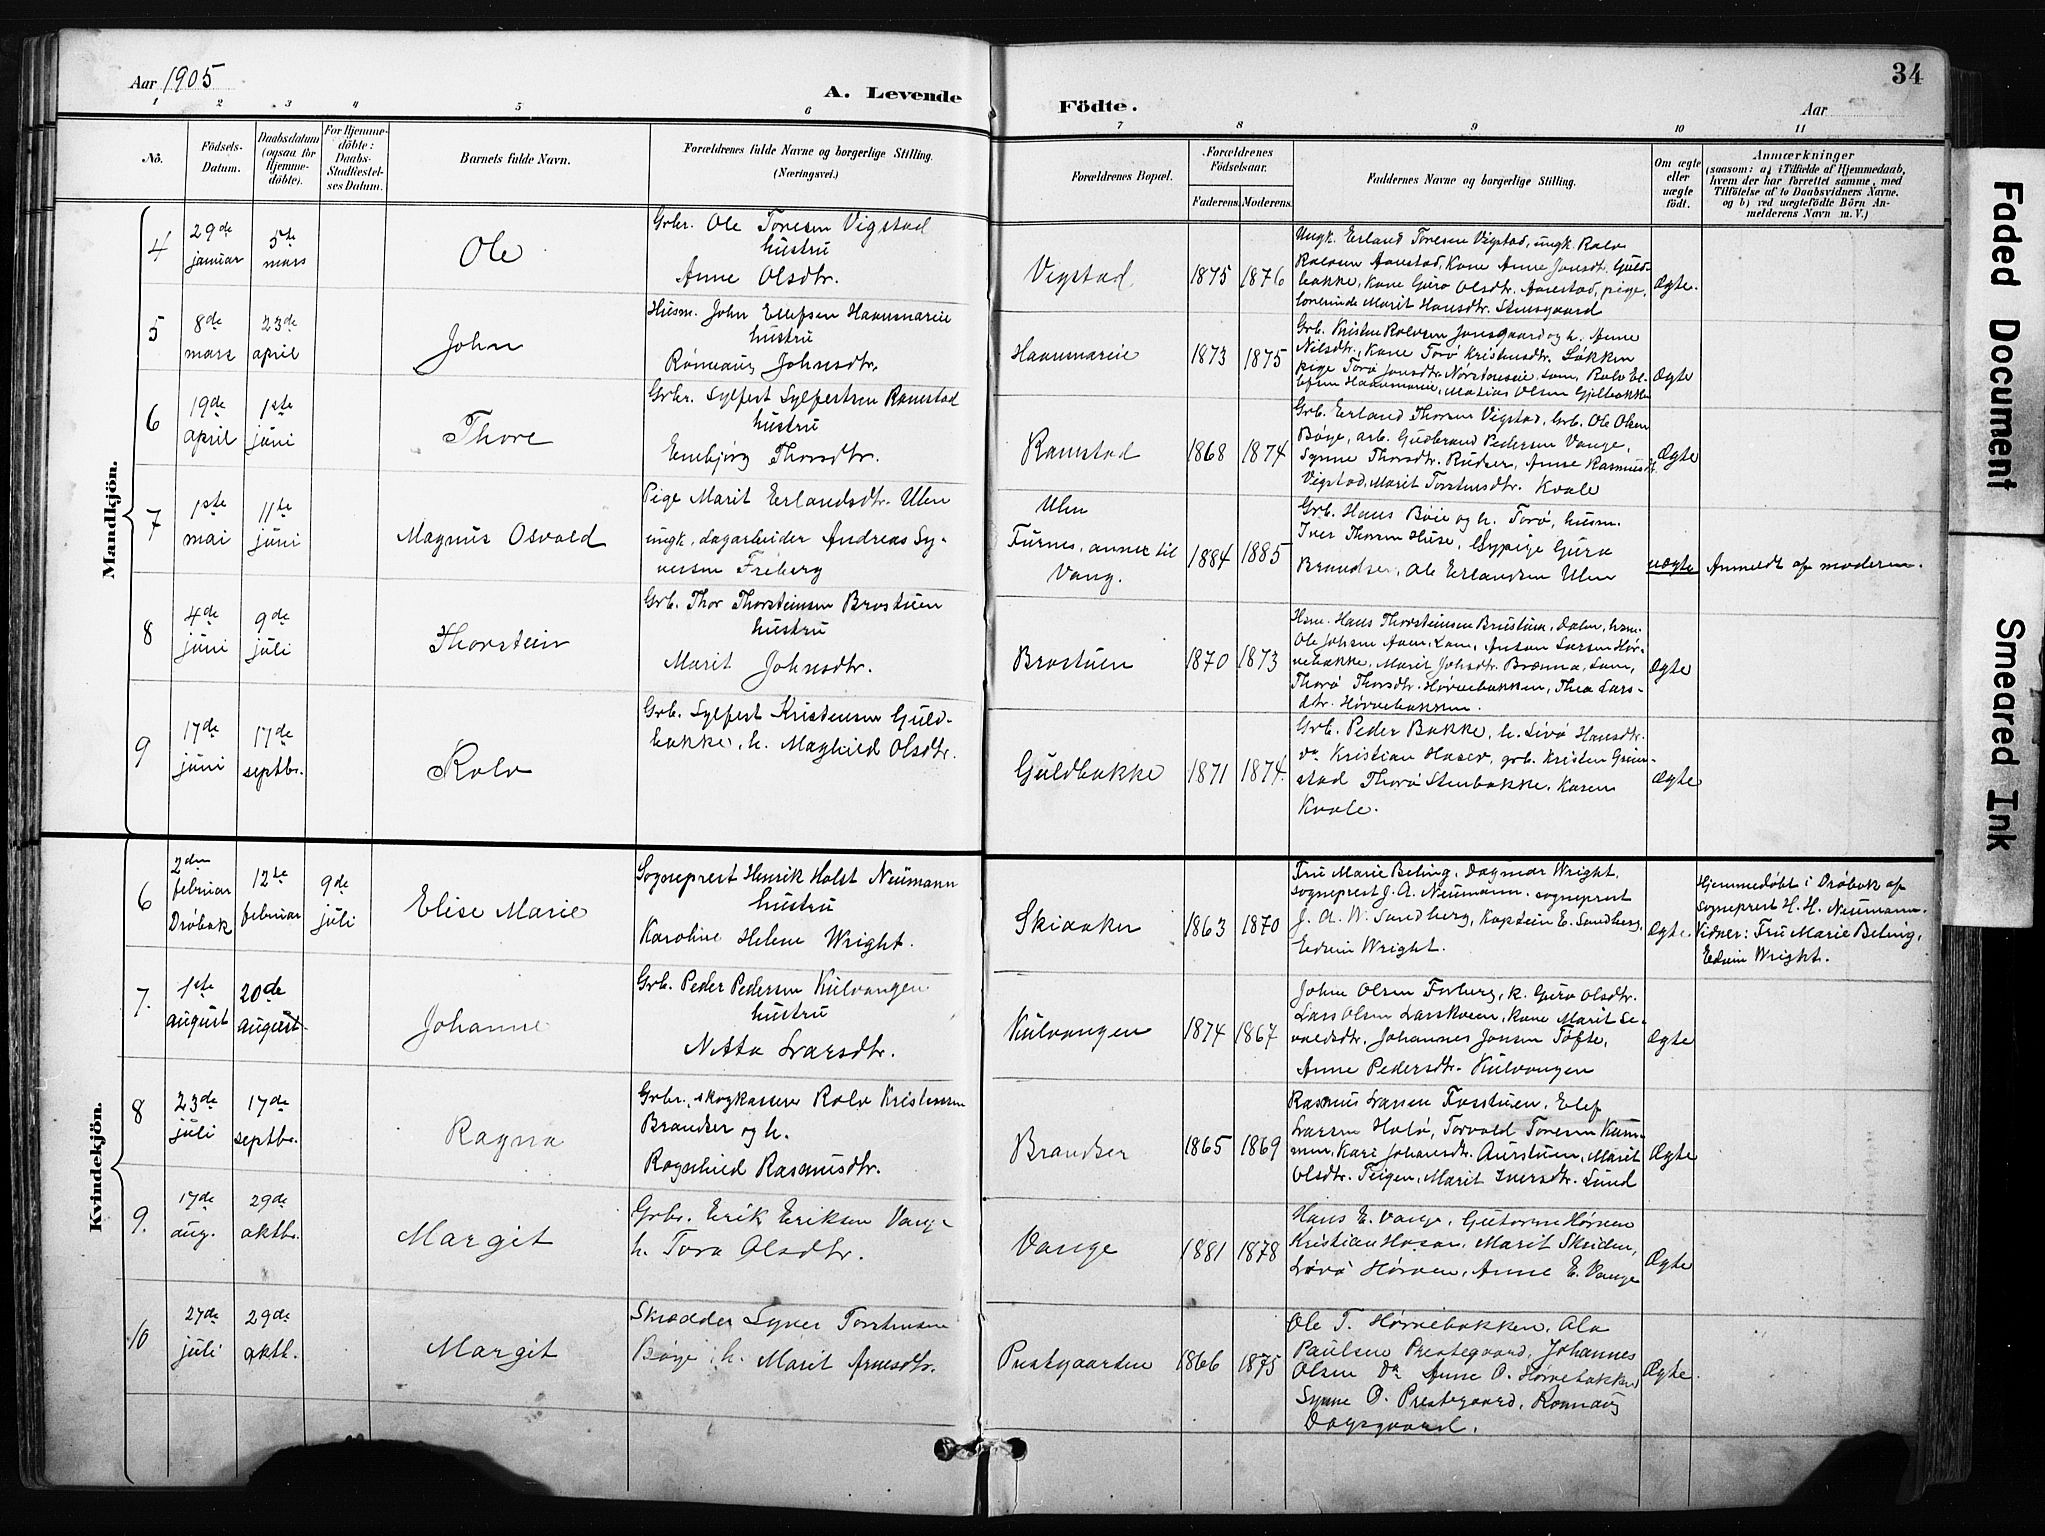 Aar 1905
A. Levende
Födte.
Aar
34
1 2 3 4 5 6 7 8 9 10 11
No.
Födsels-
Datum.
Daabsdatum
(ogsaa for
Hjemme-
döbte).
For Hjemme-
döbte:
Daabs-
Stadfæstel-
ses Datum.
Barnets fulde Navn.
Forældrenes fulde Navne og borgerlige Stilling.
(Næringsvei.)
Forældrenes Bopæl.
Forældrenes
Födselsaar.
Faderens. Moderens.
Faddernes Navne og borgerlige Stilling.
Om ægte
eller
uægte
födt.
Anmærkninger
(saasom: a) i Tilfælde af Hjemmedaab,
hvem der har forrettet samme, med
Tilföielse af to Daabsvidners Navne.
og b) ved uægtefödte Börn An-
melderens Navn m. V.)
Mandkjön.
4
29de
januar
5te
mars
Ole
Grbr. Ole Toresen Vigstad
hustru
Anne Olsdtr.
Vigstad
1875 1876
Ungk. Erland Toresen Vigstad, ungk. Rolv
Rolvsen Aanstad, Kone Anne Jonsdt. Guld-
bakke, Kone Guro Olsdtr. Aanstad, pige,
lærerinde Marit Hansdtr. Stensgaard
Ægte.
5
8de
mars
23de
april
John
Husm. John Ellefsen Haanmareie
hustru
Rønnaug Johnsdtr.
Haanmareie
1873 1875
Grb. Kristen Rolvsen Jonsgaard og h. Anne
Nilsdtr., Kone Torø Kristensdtr. Løkken
pige Torø Jonsdtr. Nørsteneie, søn, Rolv El-
lefsen Haanmareie, Matias Olsen Gjelbakke
Ægte
6
19de
april
1ste
juni
Thore
Grbr. Sylfest Sylfestsen Ramstad
hustru
Embjørg Thorsdtr.
Ramstad
1868 1874
Grb. Erland Thorsen Vigstad, Grb. Ole Olsen
Bøye, arb. Gudbrand Pedersen Vange,
Synne Thorsdtr. Rudser, Anne Rasmusdt
Vigstad, Marit Torstensdtr. Kvale
Ægte
7
1ste
mai
11te
juni
Magnus Osvald
Pige Marit Erlandsdtr. Ulen
ungk., dagarbeider Andreas Sy-
versen Freberg
Ulen
Furnes, annex til
Vang.
1884 1885
Grb. Hans Bøie og h. Torø, husm.
Iver Thorsen Huse, Sypige Guro
Brandser, Ole Erlandsen Ulen
uægte
Anmeldt af moderen.
8
4de
juni
9de
juli
Thorstein
Grb. Thor Thorsteinsen Brostuen
hustru
Marit Johnsdtr.
Brostuen
1870 1873
Hsm. Hans Thorsteinsen Brustuen, Dalen, hsm.
Ole Johsen Aaen, Lom, Anton Larsen Hør-
vebakke, Marit Johsdtr. Brænna, Lom,
Thorø Thorsdtr. Hørvebakken, Thea Lars-
dtr. Hørvebakken.
Ægte
9
17de
juni
17de
septbr.
Rolv
Grb. Sylfest Kristensen Guld-
bakke, h. Maghild Olsdtr.
Guldbakke
1871 1874.
Grb. Peder Bakke, h. Livø Hansdtr.
Kristian Hoser, grb. Kristen Grim-
stad Thorø Stenbakke, Karen
Kvale.
Ægte
Kvindekjön.
6
2den
februar
Drøbak
12te
februar
9de
juli
Elise Marie
Sogneprest Henrik Holst Neumann
hustru
Karoline Helene Wright.
Skiaaker
1863 1870
Fru Marie Beling, Dagmar Wright,
sogneprest J. A. Neumann, sogneprest
J. A. W. Sandberg, Kaptein E. Sandberg,
Edvin Wright.
Ægte.
Hjemmedøbt i Drøbak af
sogneprest H. H. Neumann.
Vidner: Fru Marie Beling,
Edvin Wright.
7.
1ste
august
20de
august
Johanne
Grb. Peder Pedersen Kulvangen
hustru
Netta Larsdtr.
Kulvangen
1874 1867
John Olsen Forberg, k. Guro Olsdtr.
Lars Olsen Larskveen, Kone Marit Se-
valdsdtr., Johannes Jonsen Tøfte,
Anne Pedersdtr. Kulvangen
Ægte
8
23de
juli
17de
septbr.
Ragna
Grbr., skogkasserer Rolv Kristensen
Brandser og h.
Ragnhild Rasmusdtr.
Brandser
1865 1869
Rasmus Larsen Forstuen, Elef
Larsen Holø, Torvald Toresen Kum-
men, Kari Johansdt. Aurstuen, Marit
Olsdtr. Teigen, Marit Iversdtr. Lund
Ægte
9.
17de
aug.
29de
oktbr.
Margit
Grbr. Erik Eriksen Vange
h. Tora Olsdtr.
Vange
1881 1878
Hans E. Vange, Guttorm Hørven
Kristian Hoser, Marit Skriden,
Livø Hørven, Anne E. Vange
Ægte
10
27de
juli
29de
oktb.
Margit
Skrædder Syver Torstensen
Bøye, h. Marit Arnesdtr.
Prestgaarden
1866 1875
Ole T. Hørvebakken, Ola
Paulsen Prestegaard, Johannes
Olsen Do Anne O. Hørvebakken
Synne O. Prestegaard, Rønnaug
Dagsgaard.
Ægte.
Faded Document
Smeared Ink